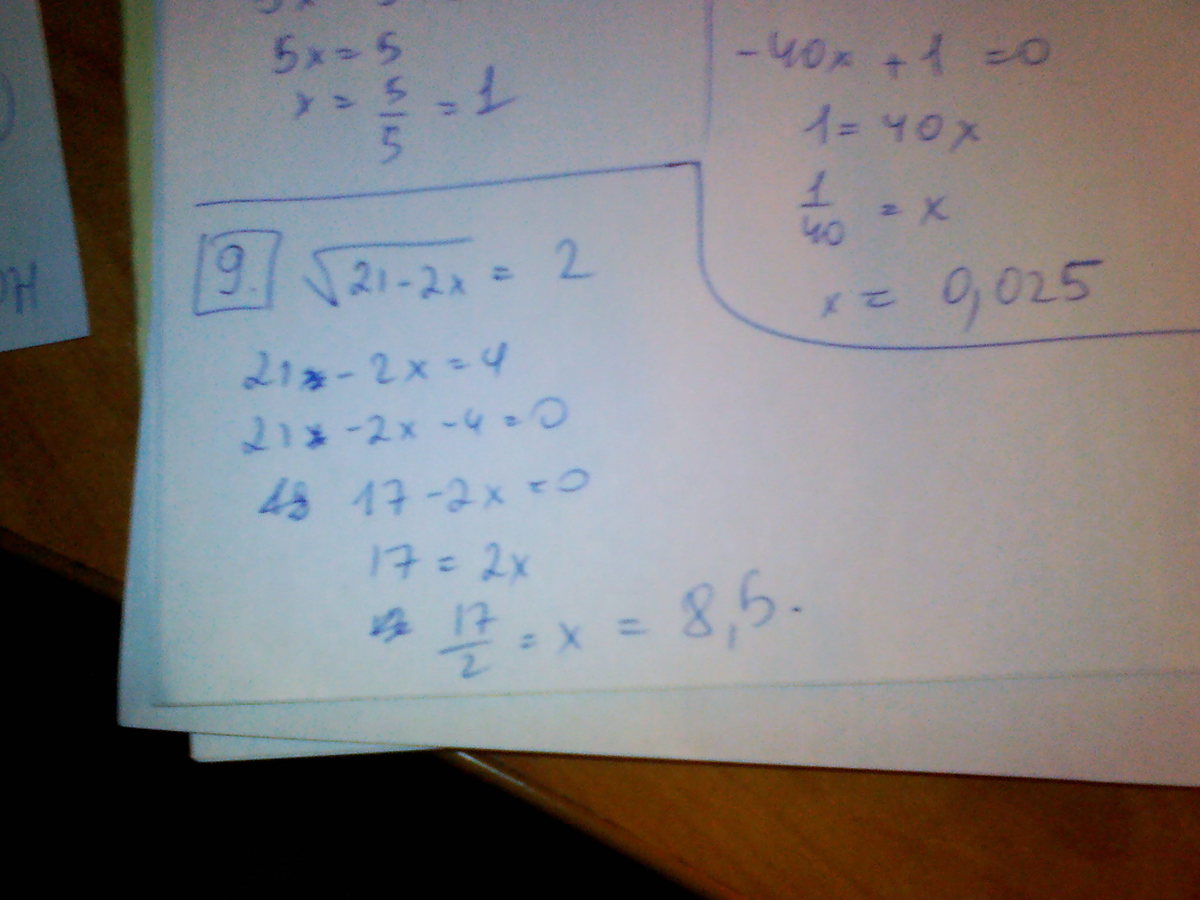 5x = 5
x = 5/5 = 1
-40x + 1 = 0
1 = 40x
1/40 = x
x = 0,025
9. √21-2x = 2
21 - 2x = 4
21 - 2x - 4 = 0
17 - 2x = 0
17 = 2x
17/2 = x = 8,5.